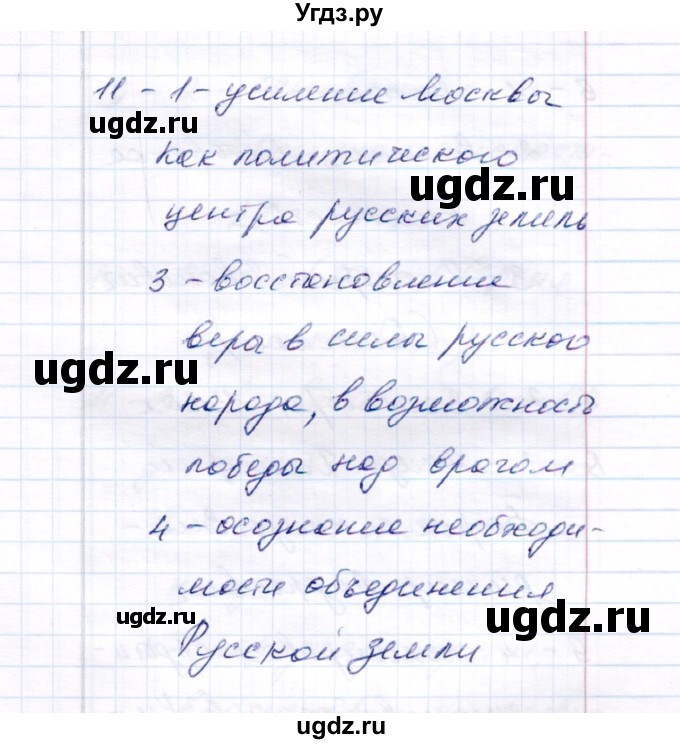 Угдз.ру
11 - 1 - усиление Москвы
ugdz.ru
как политического
ugdz.ru
центра русских земель
3 - восстановление
вера в силы русского
ugdz.ru
народа, в возможность
победы над врагом
4 - осознание необходи-
мости объединения
ugdz.ru
ugdz.ru
Русской земли
ugdz.ru